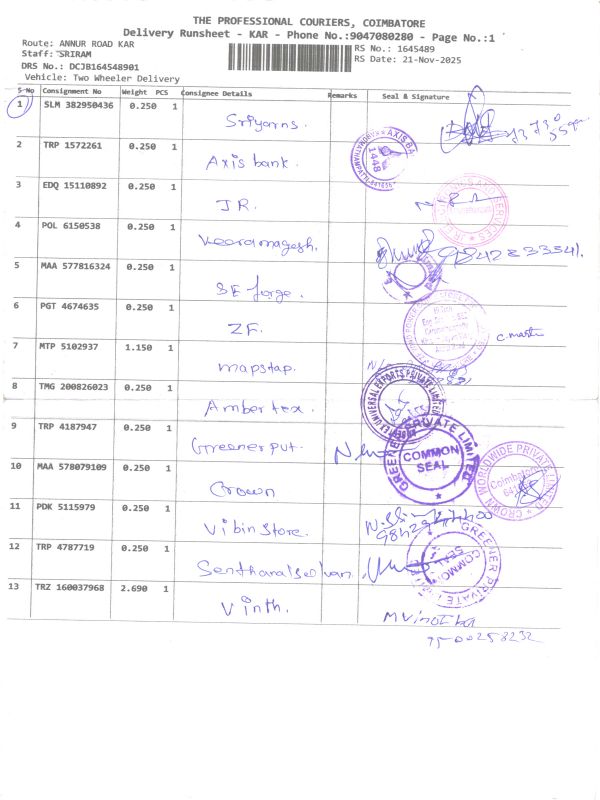 THE PROFESSIONAL COURIERS, COIMBATORE
Delivery Runsheet - KAR - Phone No.:9047080280 - Page No.:1
Route: ANNUR ROAD KAR
RS No.: 1645489
Staff: SRIRAM
RS Date: 21-Nov-2025
DRS No.: DCJB164548901
Vehicle: Two Wheeler Delivery
S No Consignment No Weight PCS Consignee Details Remarks Seal & Signature
1 SLM 382950436 0.250 1 Sriyarns.
2 TRP 1572261 0.250 1 Axis bank. AXIS BA 1448
3 EDQ 15110892 0.250 1 JR.
4 POL 6150538 0.250 1 Veeramagesh. 9842233541.
5 MAA 577816324 0.250 1 SE forge.
6 PGT 4674635 0.250 1 ZF.
7 MTP 5102937 1.150 1 mapstap.
8 TMG 200826023 0.250 1 Amber tex. UNIVERSAL EXPORTS PRIVATE LIMITED
9 TRP 4187947 0.250 1 Greener put. GREENER PRIVATE LIMITED COMMON SEAL
10 MAA 578079109 0.250 1 Crown CROWN WORLDWIDE PRIVATE LIMITED Coimbatore
11 PDK 5115979 0.250 1 Vibin Store.
12 TRP 4787719 0.250 1 GREENER PRIVATE COMMON SEAL
13 TRZ 160037968 2.690 1 Vinth.
75-00258232